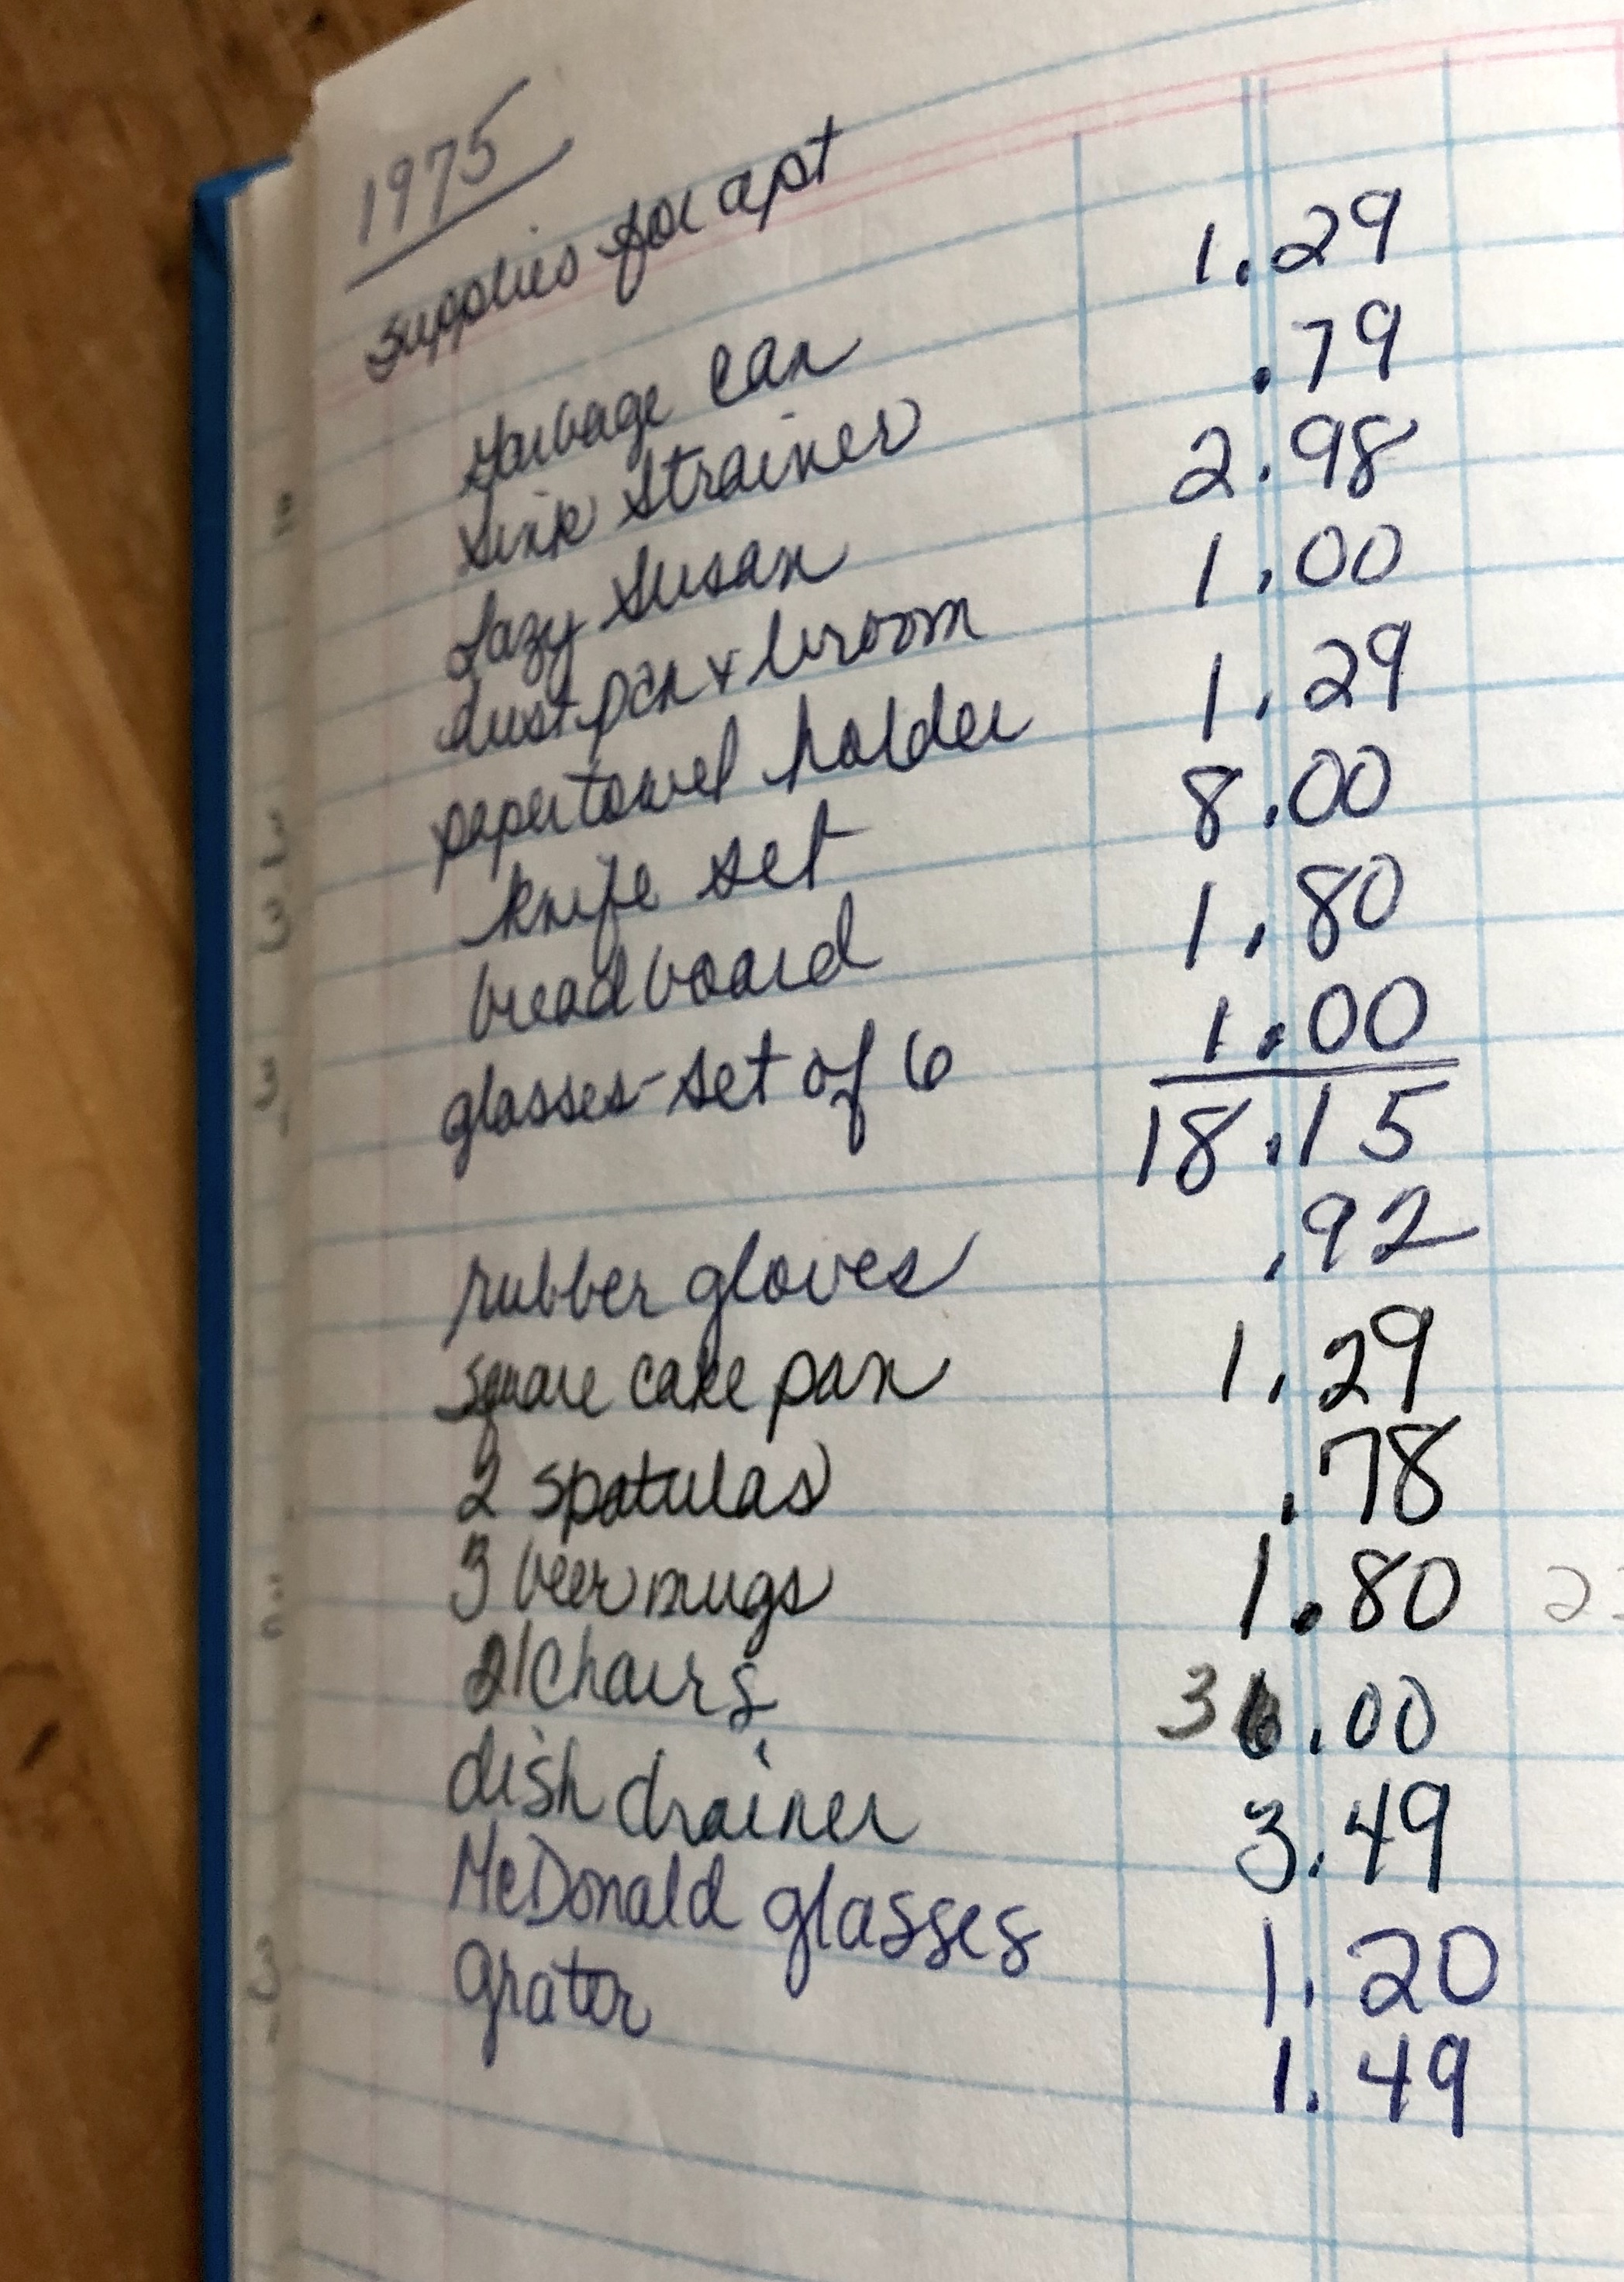 1975
supplies for apt
garbage can 1.29
sink strainer .79
lazy susan 2.98
dust pan + broom 1.00
papertowel holder 1.29
knife set 8.00
breadboard 1.80
glasses-set of 6 1.00
18.15
rubber gloves .92
square cake pan 1.29
2 spatulas .78
3 beer mugs 1.80
2 chairs 36.00
dish drainer 3.49
McDonald glasses 1.20
grator 1.49